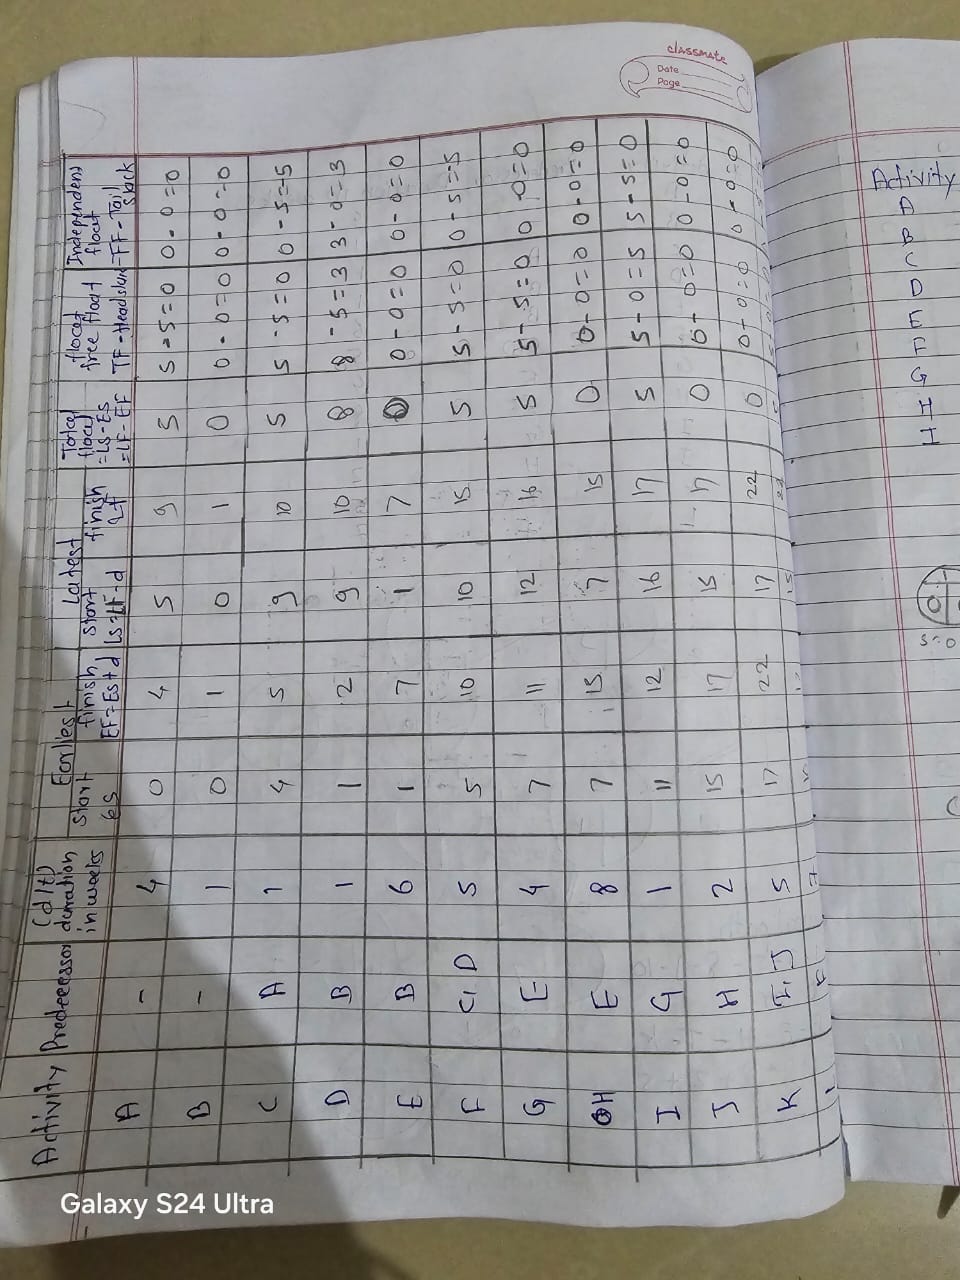 classmate
Date
Page
Activity Predecessor (d/t) duration in weeks Earliest start ES finish EF=Es+d Latest start LS=LF-d finish LF Total float =LS-ES =LF-EF float free float TF-Head slack Independent float =FF-Tail slack
A - 4 0 4 5 9 5 5-5=0 0-0=0
B - 1 0 1 0 1 0 0-0=0 0-0=0
C A 1 4 5 9 10 5 5-5=0 0-5=-5
D B 1 1 2 9 10 8 8-5=3 3-0=3
E B 6 1 7 1 7 0 0-0=0 0-0=0
F C, D 5 5 10 10 15 5 5-5=0 0-5=-5
G E 4 7 11 12 16 5 5-5=0 0-0=0
H E 8 7 15 7 15 0 0-0=0 0-0=0
I G 1 11 12 16 17 5 5-0=5 5-5=0
J H 2 15 17 15 17 0 0-0=0 0-0=0
K I, J 5 17 22 17 22 0 0-0=0 0-0=0
Activity
A
B
C
D
E
F
G
H
Galaxy S24 Ultra